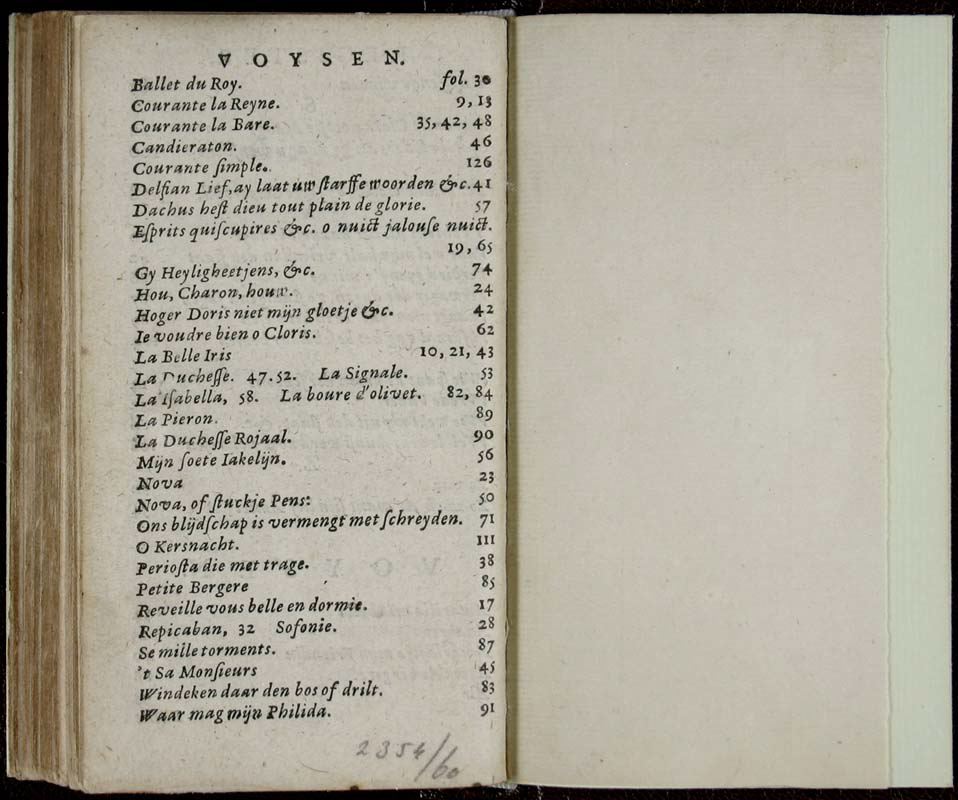 VOYSEN.
Ballet du Roy. fol. 30
Courante la Reyne. 9, 13
Courante la Bare. 35, 42, 48
Candieraton. 46
Courante ſimple. 126
Delſian Lief, ay laat uw ſtarffe woorden &c. 41
Dachus heſt dieu tout plain de glorie. 57
Eſprits quiſcupires &c. o nuict jalouſe nuict.
19, 65
Gy Heyligheetjens, &c. 74
Hou, Charon, houw. 24
Hoger Doris niet mijn gloetje &c. 42
Ie voudre bien o Cloris. 62
La Belle Iris 10, 21, 43
La Ducheſſe. 47. 52. La Signale. 53
La Iſabella, 58. La boure d'olivet. 82, 84
La Pieron. 89
La Ducheſſe Rojaal. 90
Mijn ſoete Iakelijn. 56
Nova 23
Nova, of ſtuckje Pens: 50
Ons blijdſchap is vermengt met ſchreyden. 71
O Kersnacht. 111
Perioſta die met trage. 38
Petite Bergere 85
Reveille vous belle en dormie. 17
Repicaban, 32 Sofonie. 28
Se mille torments. 87
't Sa Monſieurs 45
Windeken daar den bos of drilt. 83
Waar mag mijn Philida. 91
2354/60